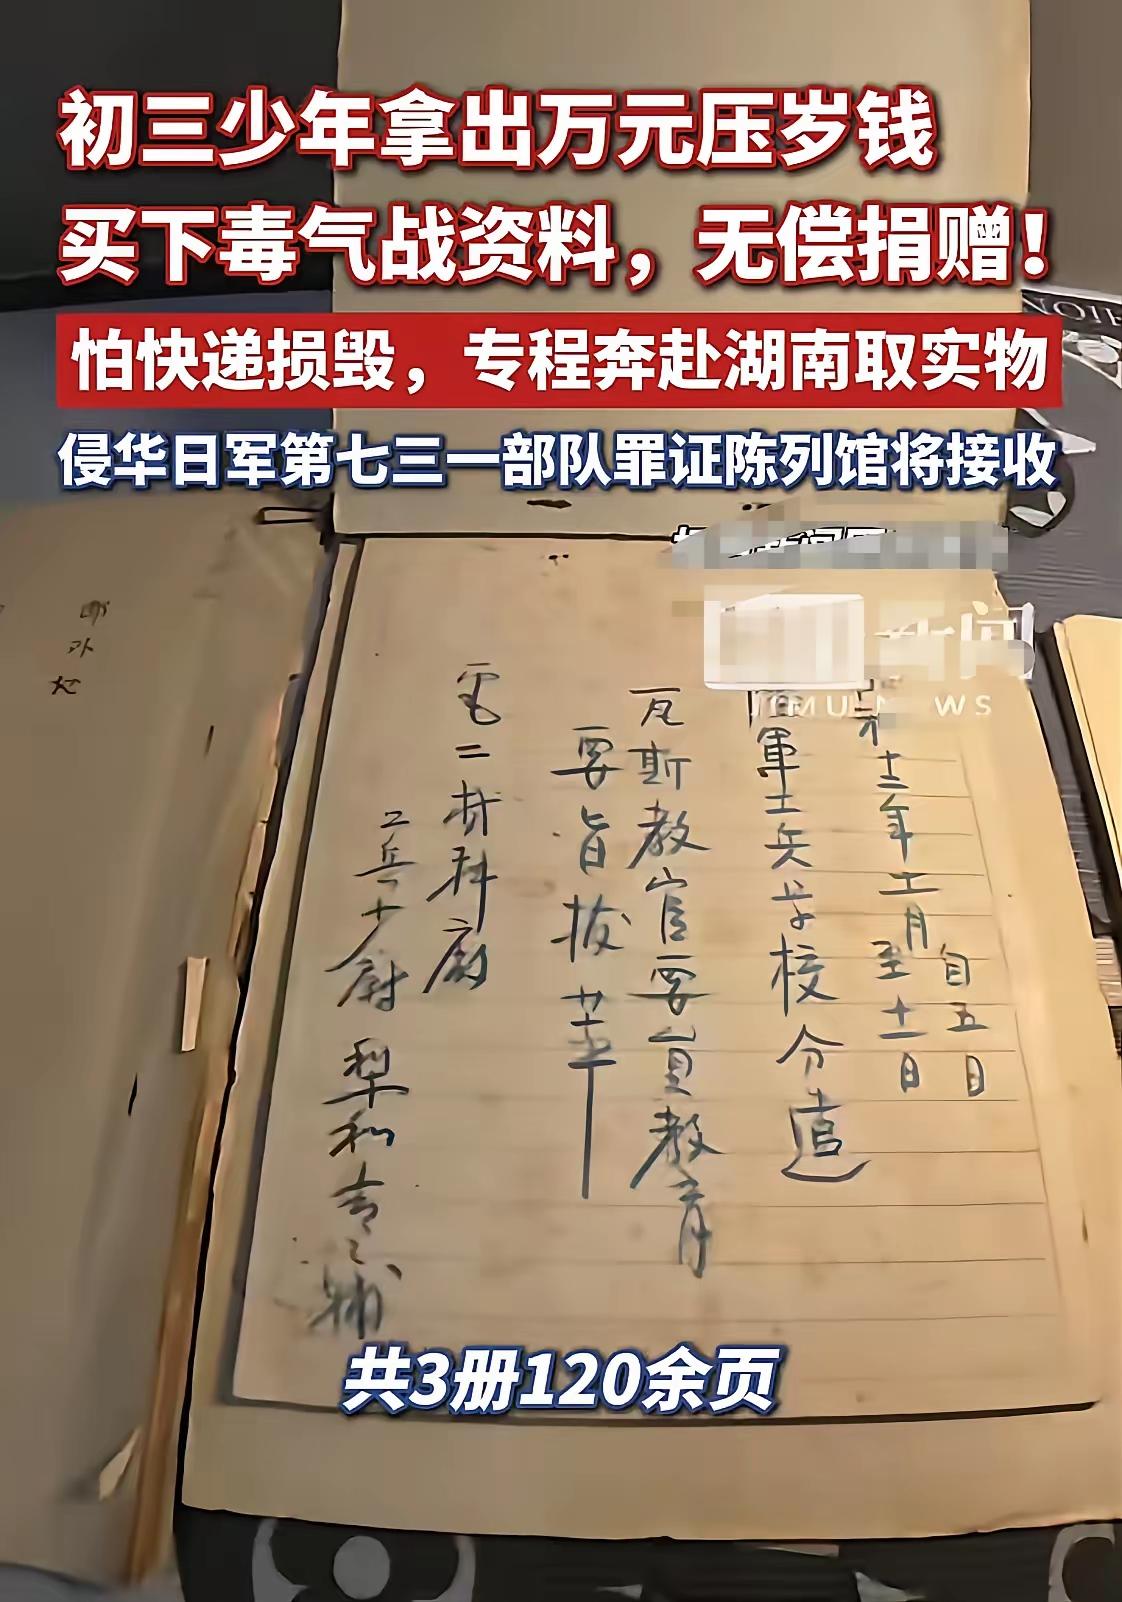 初三少年拿出万元压岁钱
买下毒气战资料，无偿捐赠！
怕快递损毁，专程奔赴湖南取实物
侵华日军第七三一部队罪证陈列馆将接收
新闻
JIMU NEWS
十二年十一月
自五日
至十一日
軍士兵学校分遣
瓦斯教官要員教育
要旨抜萃
電二材料廠
工兵少尉
共3册120余页